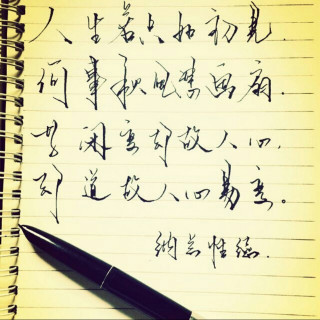 人生若只如初见.
何事秋风悲画扇.
等闲变却故人心,
却道故人心易变。
纳兰性德.